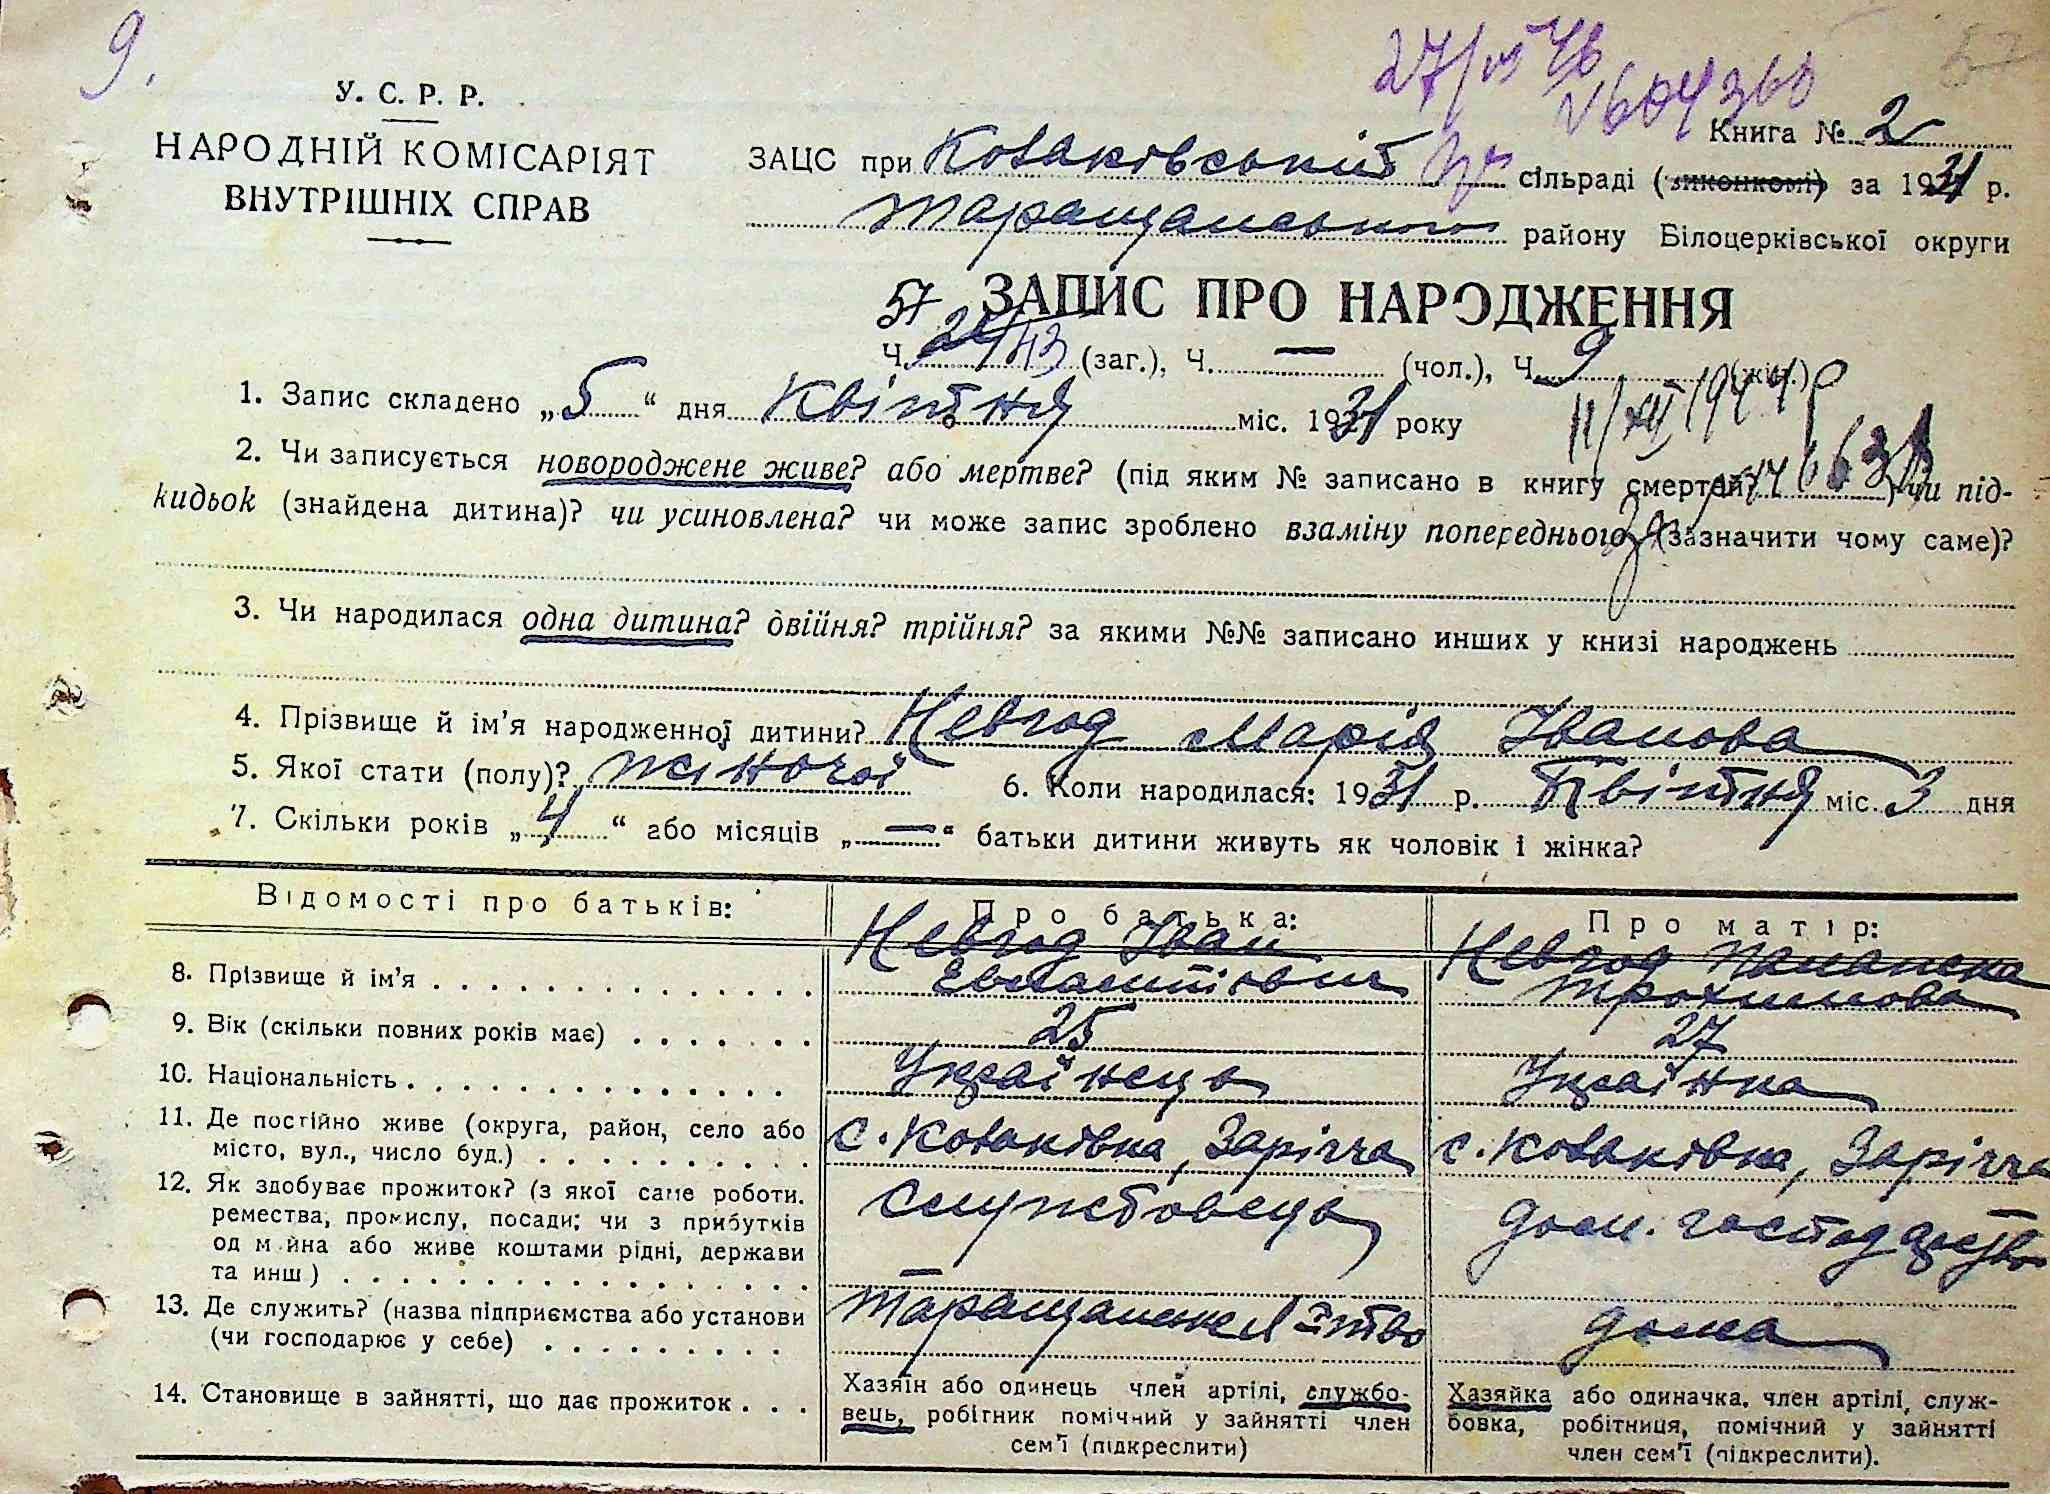 9.
27/VII 46
№604360
У. С. Р. Р.
НАРОДНІЙ КОМІСАРІЯТ
ВНУТРІШНІХ СПРАВ
Книга № 2
ЗАЦС при Козаківській сільраді (виконкомі) за 1931 р.
Таращанського району Білоцерківської округи
57 ЗАПИС ПРО НАРОДЖЕННЯ
Ч. 43 (заг.), Ч. — (чол.), Ч. 9 (жін.)
1. Запис складено „5“ дня Квітня міс. 1931 року
11/XII 1944 р
2. Чи записується новороджене живе? або мертве? (під яким № записано в книгу смертей? ) чи під-
кидьок (знайдена дитина)? чи усиновлена? чи може запис зроблено взаміну попереднього (зазначити чому саме)?
3. Чи народилася одна дитина? двійня? трійня? за якими №№ записано инших у книзі народжень
4. Прізвище й ім’я народженної дитини? Невгод Марія Іванова
5. Якої стати (полу)? жіночої 6. Коли народилася: 1931 р. Квітня міс. 3 дня
7. Скільки років „4“ або місяців „—“ батьки дитини живуть як чоловік і жінка?
Відомості про батьків: Про батька: Про матір:
8. Прізвище й ім’я Невгод Іван Невгод Панаска
Трохимова
9. Вік (скільки повних років має) 25 27
10. Національність Українець Українка
11. Де постійно живе (округа, район, село або
місто, вул., число буд.) с. Козаківка, Зарічча с. Козаківка, Зарічча
12. Як здобуває прожиток? (з якої саме роботи.
ремества, промислу, посади; чи з прибутків
од майна або живе коштами рідні, держави
та инш) Службовець дом. господарство
13. Де служить? (назва підприємства або установи
(чи господарює у себе) Таращанське дома
14. Становище в зайнятті, що дає прожиток
Хазяїн або одинець член артілі, службо-
вець, робітник помічний у зайнятті член
сем’ї (підкреслити)
Хазяйка або одиначка. член артілі, служ-
бовка, робітниця, помічний у зайнятті
член сем’ї (підкреслити).